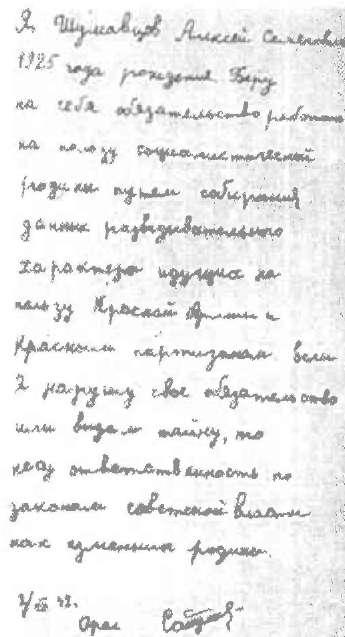 Я Шумавцов Алексей Семенович
1925 года рождения Беру
на себя обязательство работать
на пользу социалистической
родины путем собирания
данных разведывательного
характера идущих на
пользу Красной Армии и
красным партизанам Если
я нарушу свое обязательство
или выдам тайну, то
несу ответственность по
законам советской власти
как изменник родины.
42.
Орел